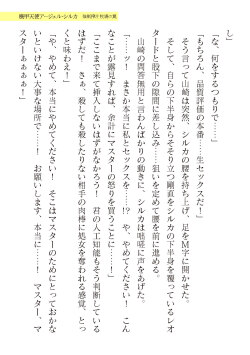 機甲天使アージェル・シルカ
し」
「な、何をするつもりで……」
「もちろん、品質評価の本番――生セックスだ！」
そう言って山崎は突然、シルカの腰を持ち上げ、足をM字に開かせた。
そして、自らの下半身からそそり立つ剛直をシルカの下半身を覆っているレオ
タードと股下の隙間に差し込み……狙いを定めて腰を前に進める。
山崎の問答無用と言わんばかりの動きに、シルカは咄嗟に声をあげた。
「……ッ！ まさか本当に私とセックスを……!? や、やめてください！ こん
なことが露見すれば、余計にマスターの怒りを買うことに……！」
「ここまで来て挿入しないはずがなかろう！ 君の人工知能もそう判断している
はずだ！ さぁ、殺しても殺したりない相手の肉棒に処女を奪われる感覚、とっ
くと味わえ！」
「や、やめて、本当にやめてください！ そこはマスターのためにとっておかな
いといけない大事な場所で……！ お願いします、本当に……！ マスター、マ
スターぁぁぁ！」